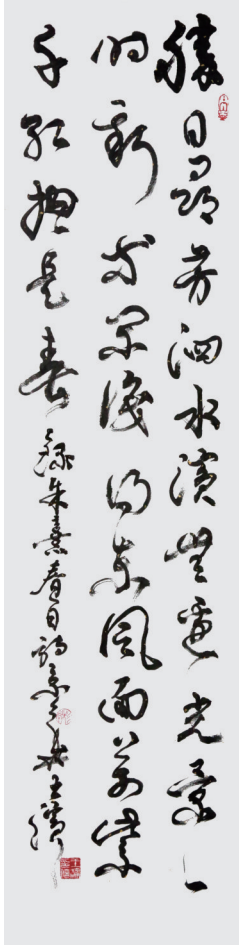 勝日尋芳泗水濱無邊光景一
時新等閒識得東風面萬紫
千紅總是春 錄朱熹春日詩